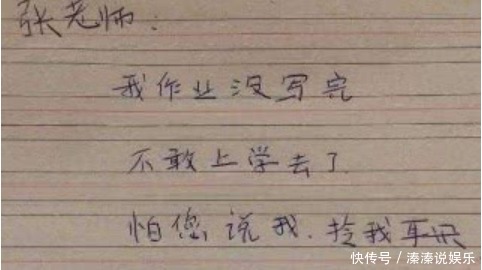 张老师:
我作业没写完
不敢上学去了
怕您说我.拎我耳朵
快传号/溱溱说娱乐